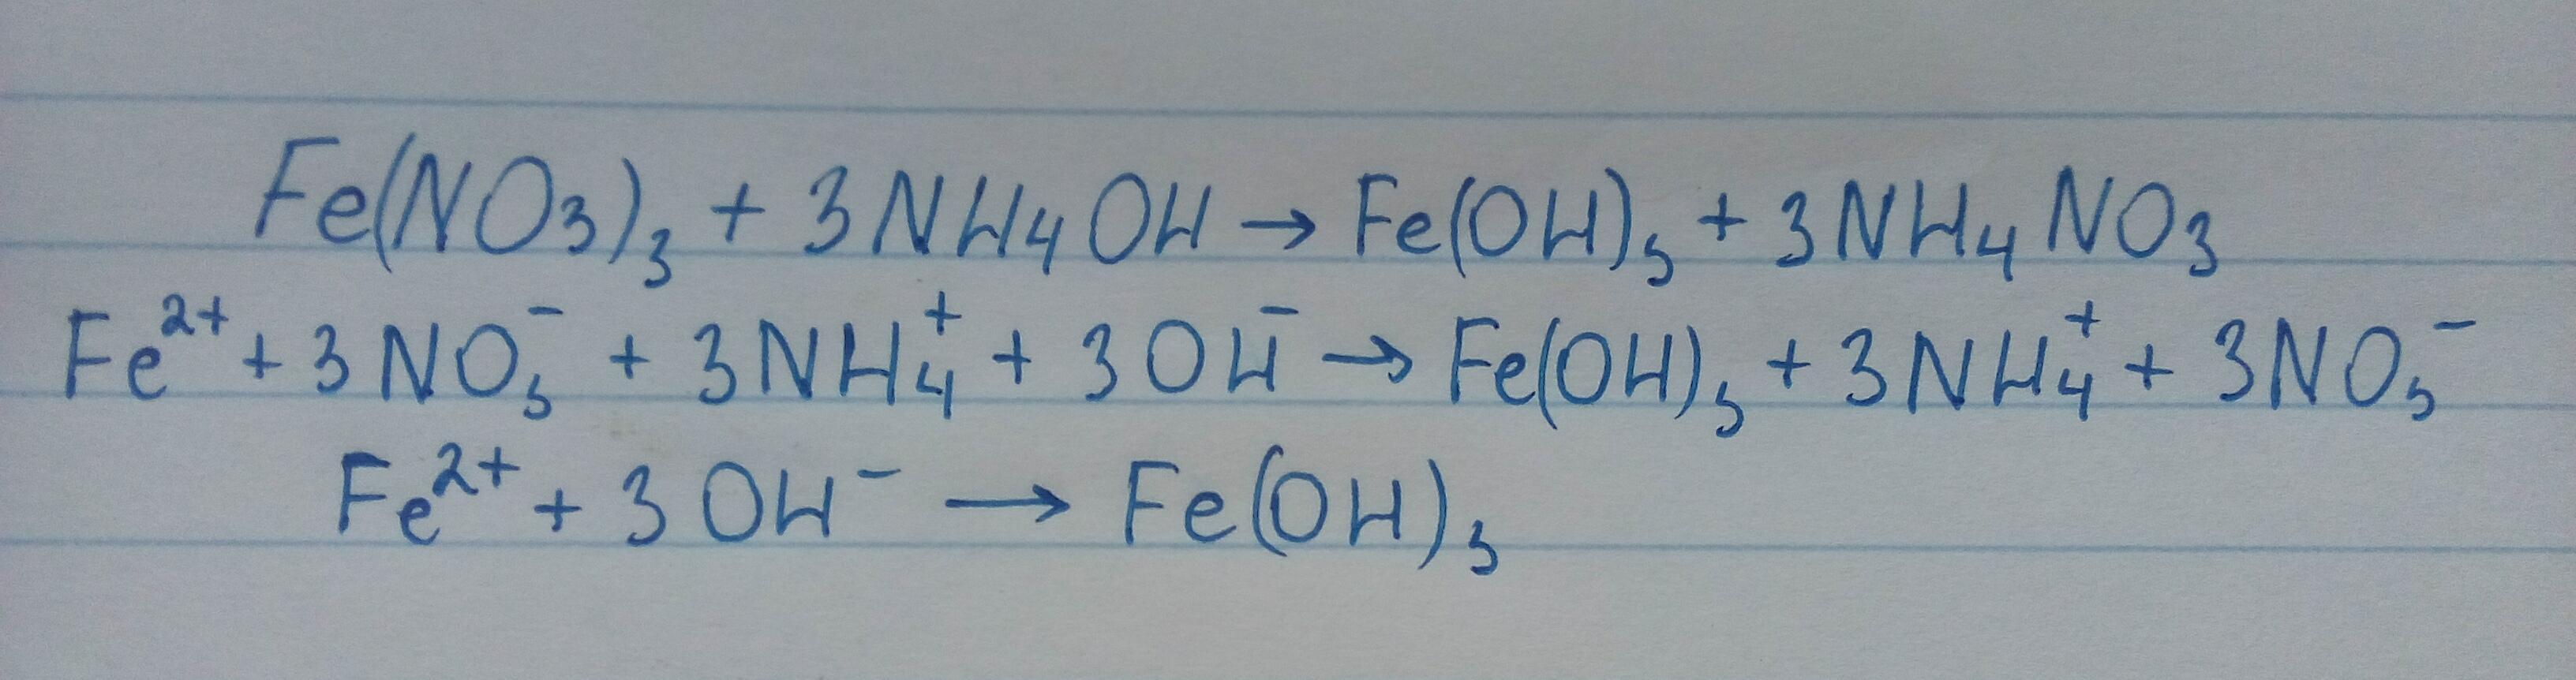 Fe(NO₃)₃ + 3NH₄OH → Fe(OH)₃ + 3NH₄NO₃
Fe²⁺ + 3NO₃⁻ + 3NH₄⁺ + 3OH⁻ → Fe(OH)₃ + 3NH₄⁺ + 3NO₃⁻
Fe²⁺ + 3OH⁻ → Fe(OH)₃